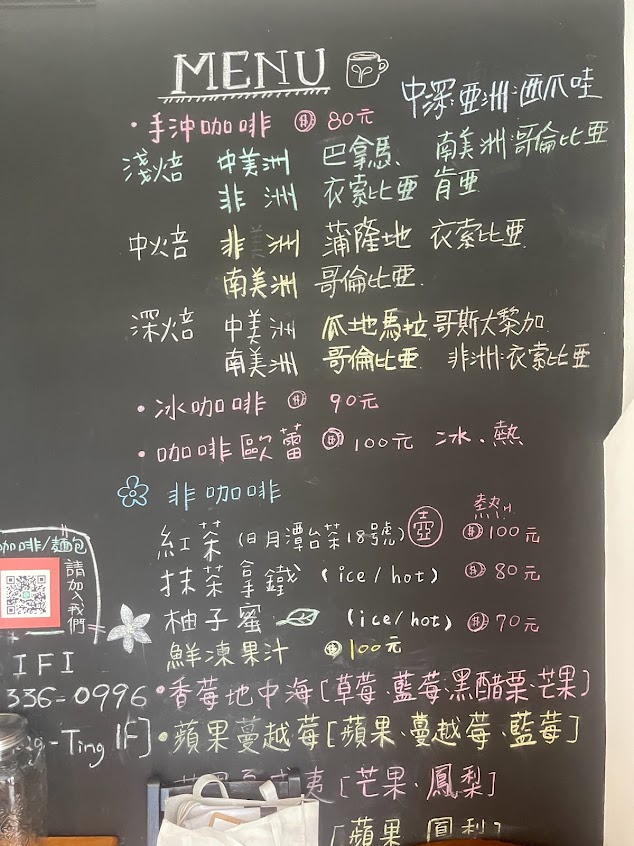 MENU
中深:亞洲:西爪哇
・手沖咖啡 80元
淺焙 中美洲 巴拿馬、南美洲:哥倫比亞
非洲 衣索比亞 肯亞
中焙 非洲 蒲隆地 衣索比亞
南美洲 哥倫比亞
深焙 中美洲 瓜地馬拉 哥斯大黎加
南美洲 哥倫比亞 非洲:衣索比亞
・冰咖啡 90元
・咖啡歐蕾 100元 冰、熱
非咖啡
熱
紅茶(日月潭台茶18號) 壺 100元
抹茶拿鐵 (ice/hot) 80元
柚子蜜 (ice/hot) 70元
鮮凍果汁 100元
・香莓地中海[草莓、藍莓、黑醋栗、芒果]
・蘋果蔓越莓[蘋果、蔓越莓、藍莓]
夷[芒果、鳳梨]
[蘋果 鳳梨]
咖啡/麵包
請加入我們
IFI
336-0996
-Ting IF]